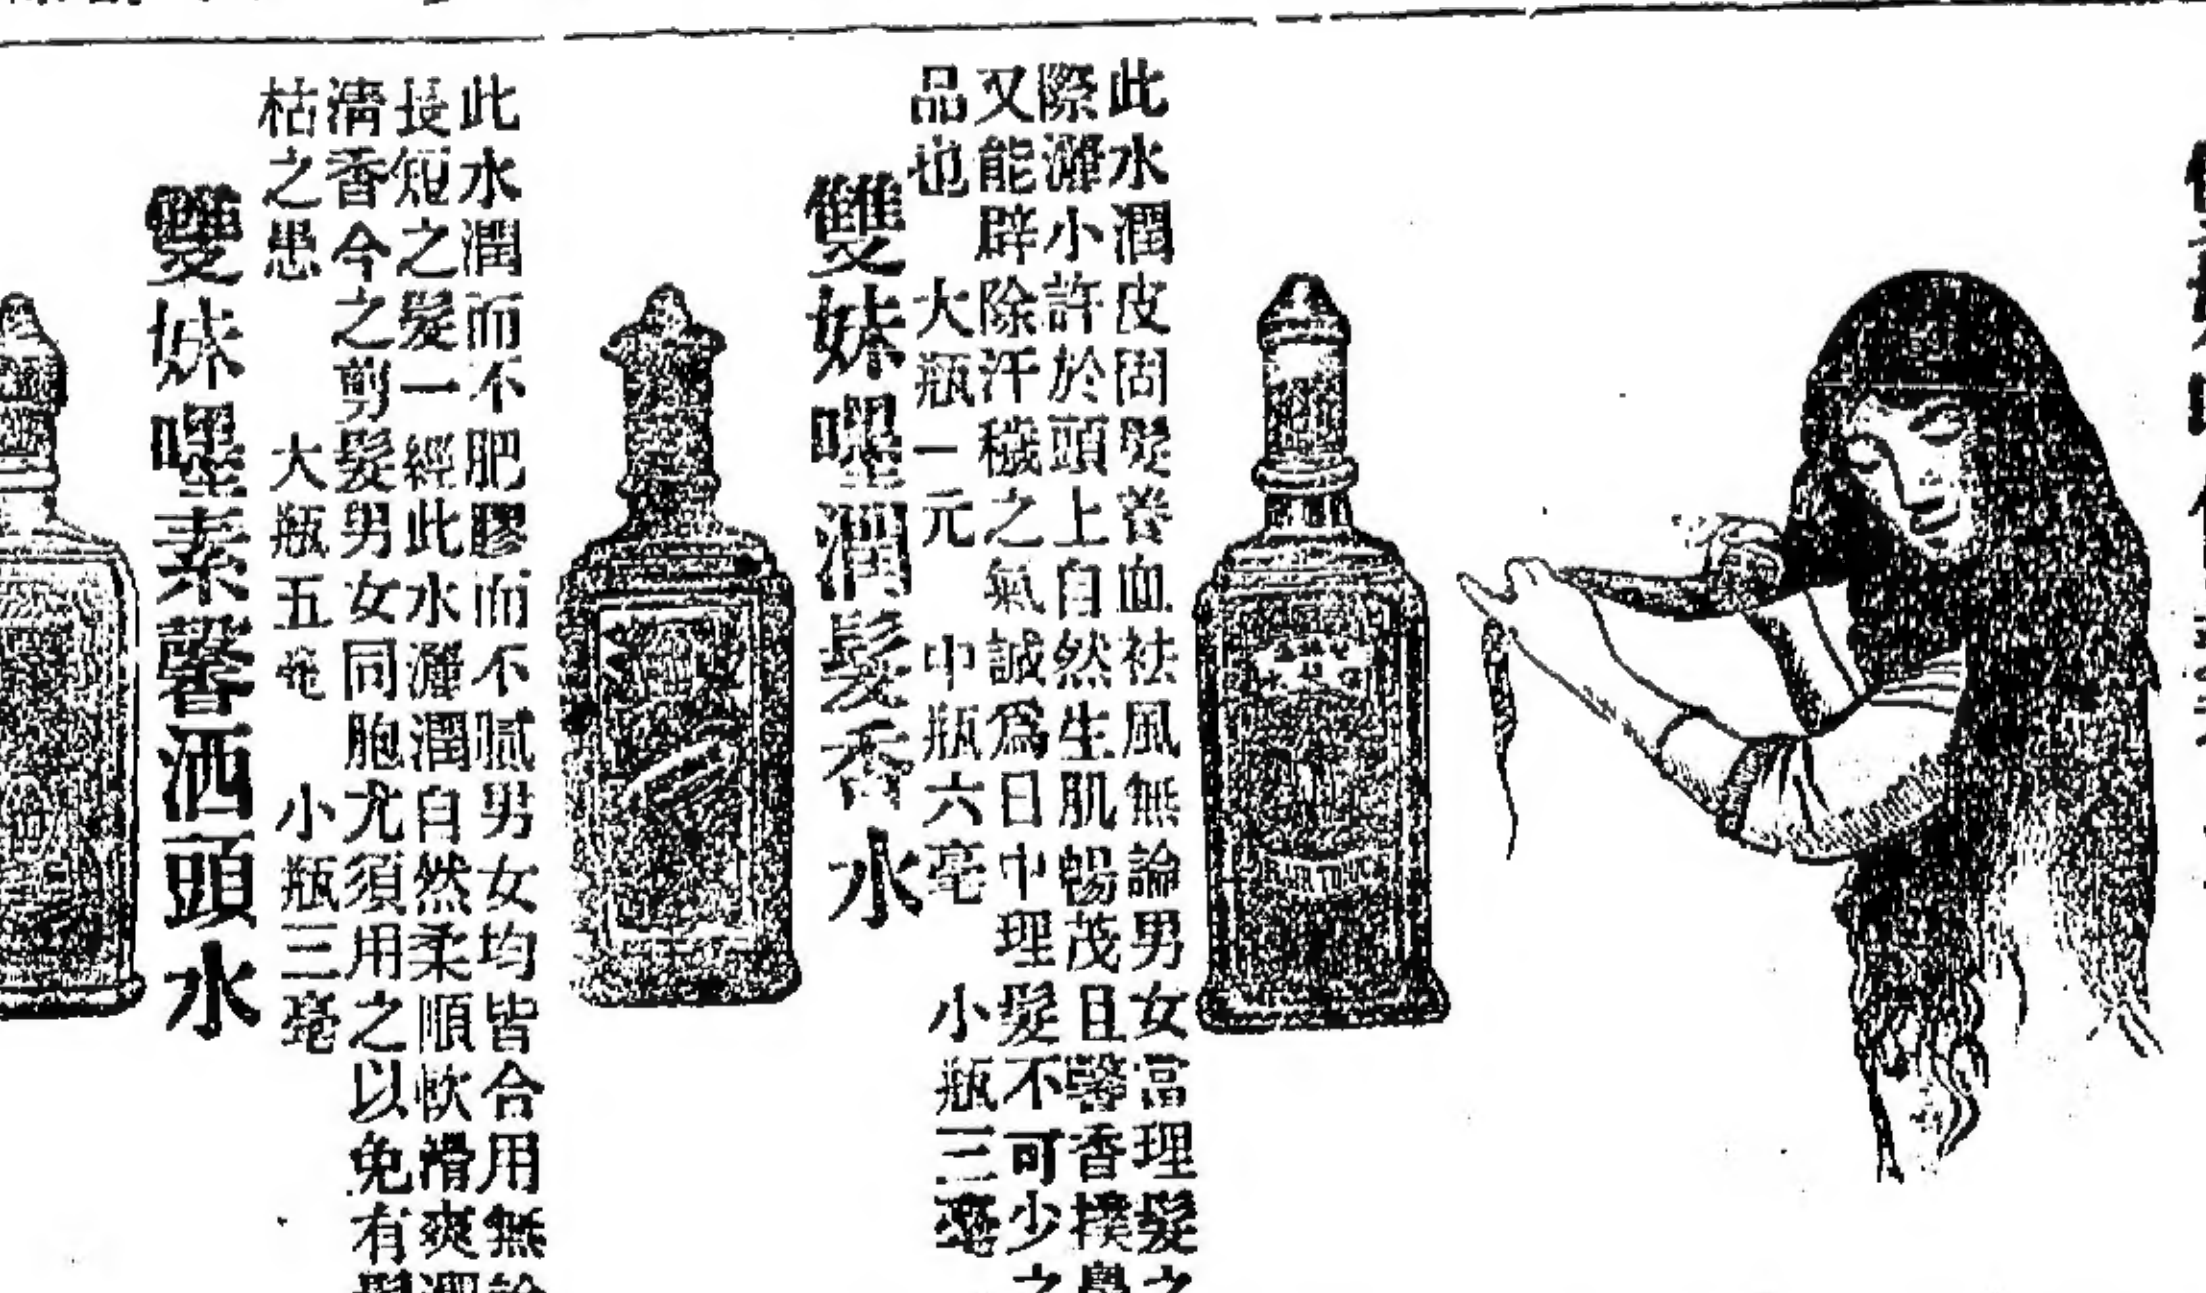 此水潤皮固髮養血祛風無論男女當理髮之
際灑小許於頭上自然生肌暢茂且馨香撲鼻
又能辟除汗穢之氣誠爲日中理髮不可少之
品也 大瓶一元 中瓶六毫 小瓶三毫
雙妹嚜潤髮香水
此水潤而不肥膠而不膩男女均皆合用無論
長短之髮一經此水灑潤自然柔順軟滑爽潤
清香今之剪髮男女同胞尤須用之以免有髮
枯之患 大瓶五毫 小瓶三毫
雙妹嚜素馨洒頭水